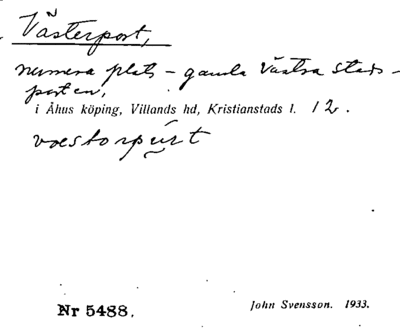 Västerport,
numera plats – gamla Västra stads-
porten,
i Åhus köping, Villands hd, Kristianstads l. 12.
voestorpürt
Nr 5488.
John Svensson. 1933.